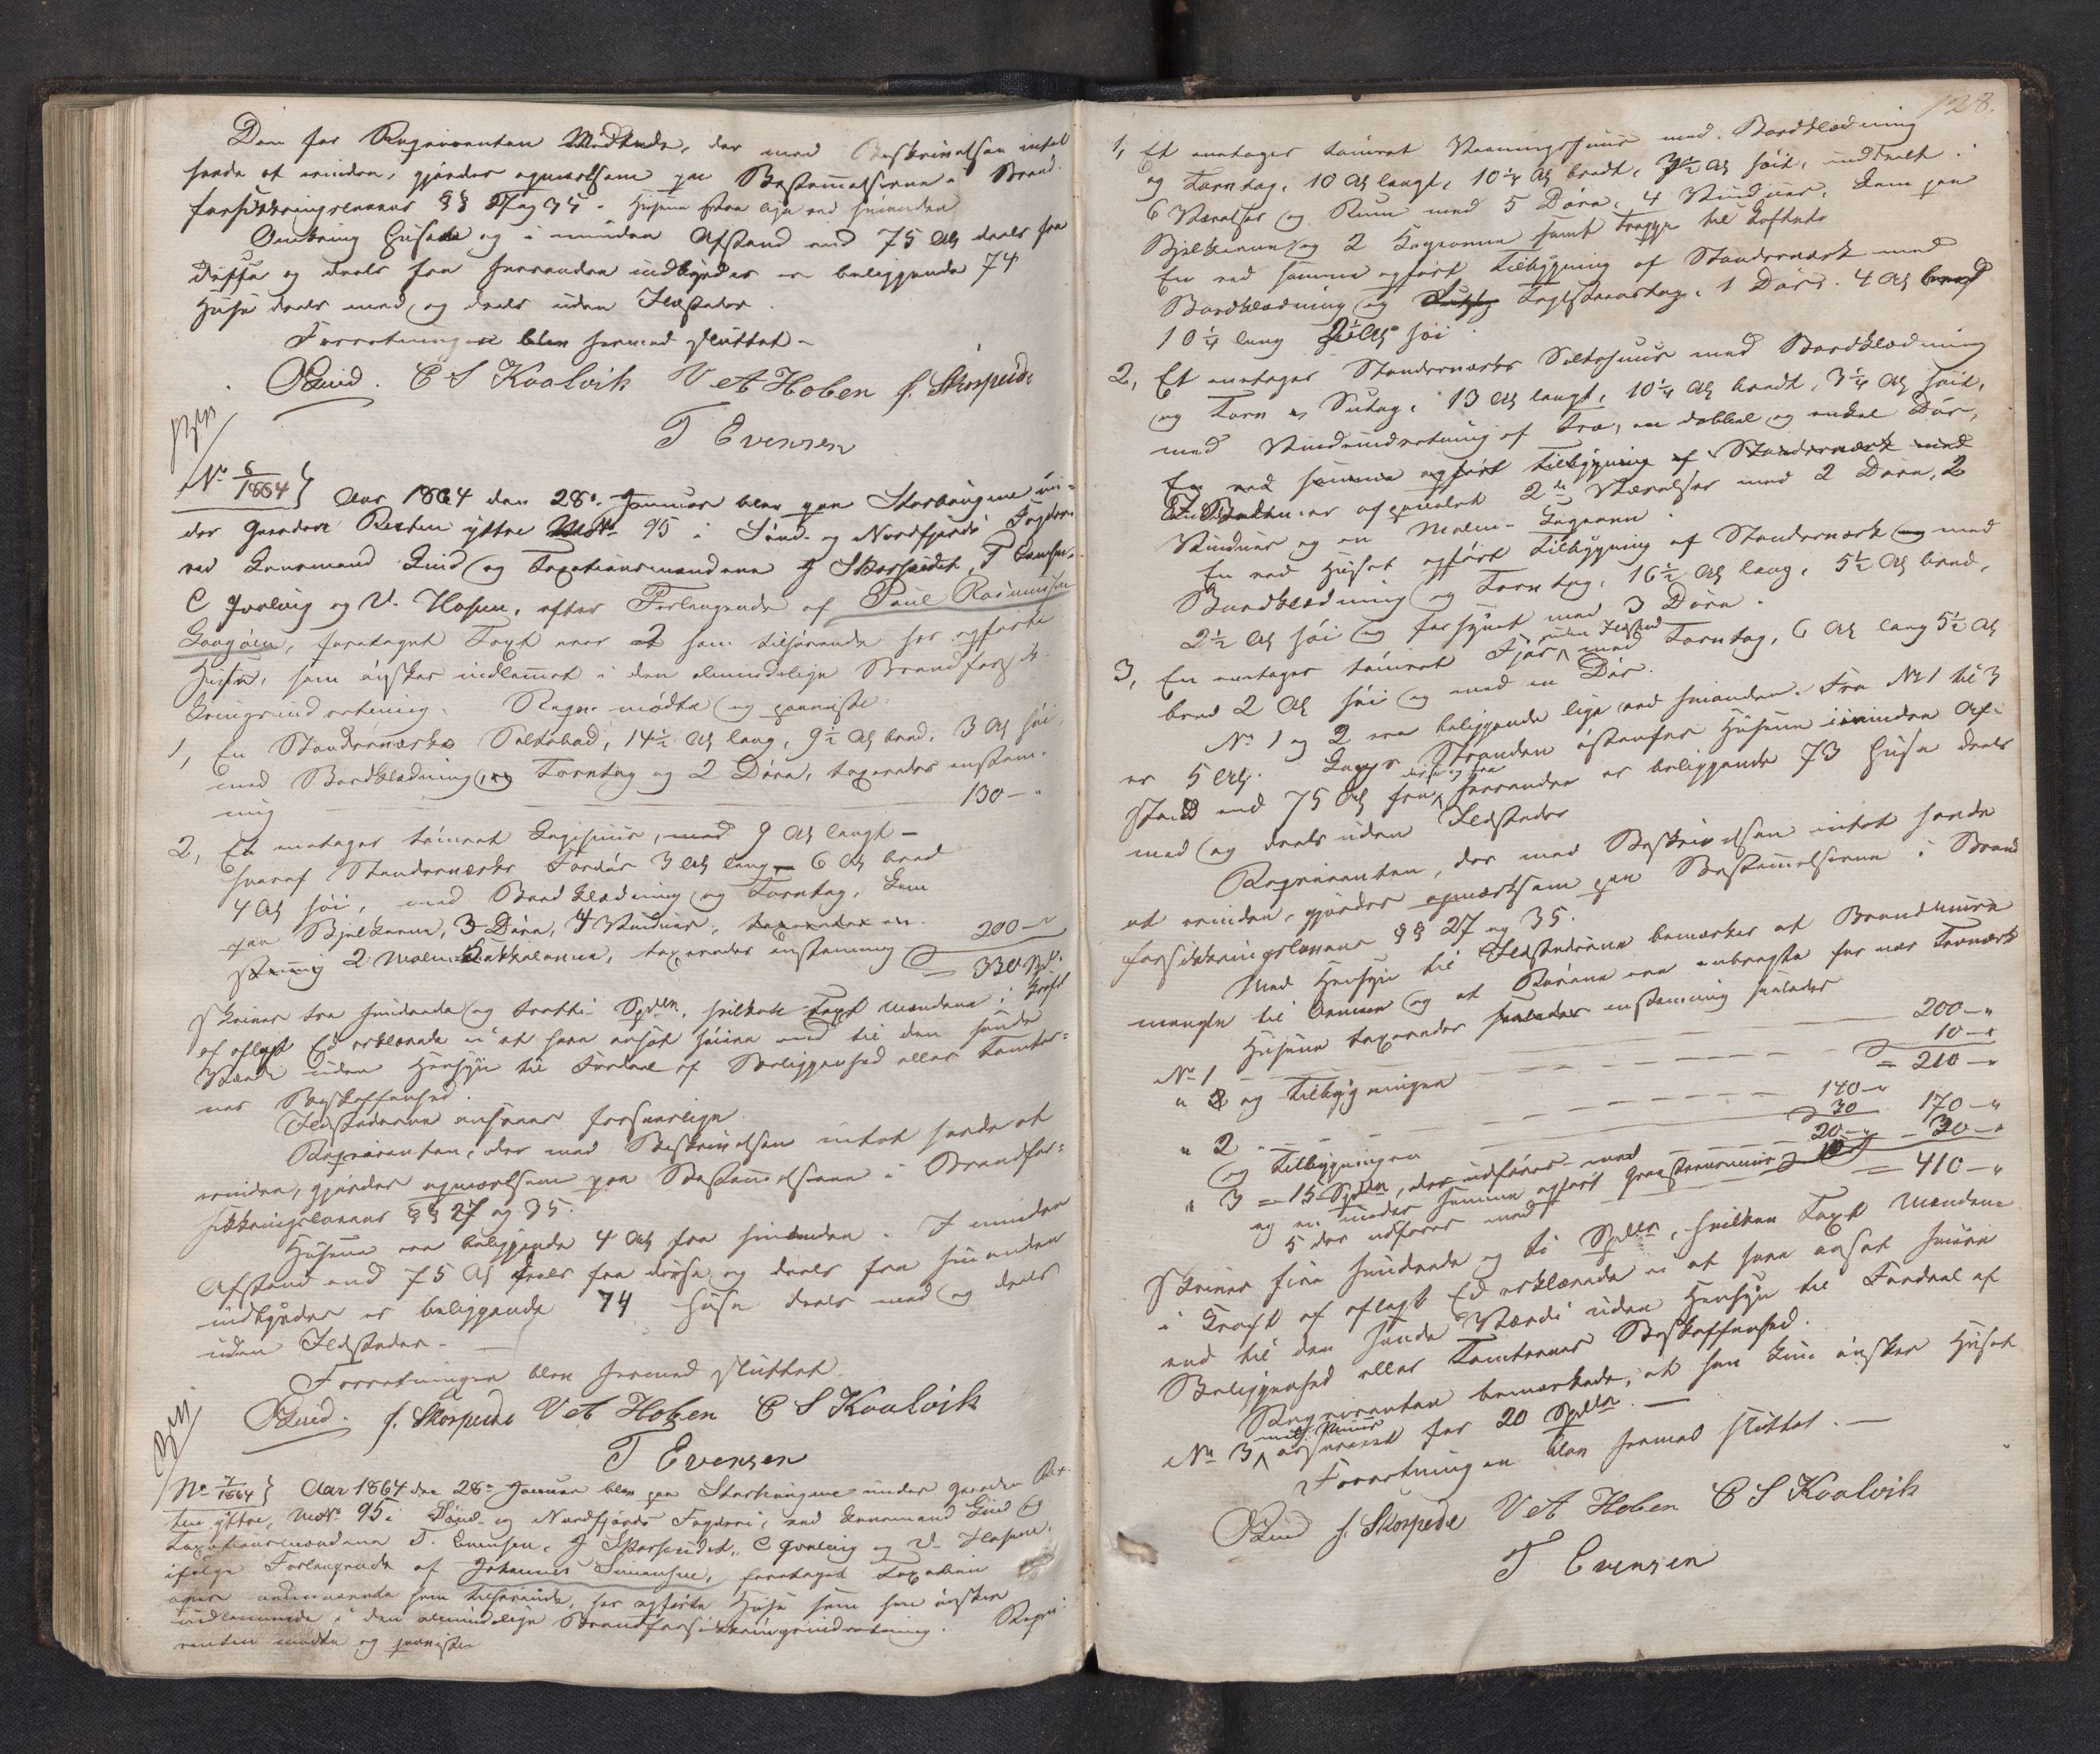 Den for Reqvirenten Mødende, der mod Beskrivelsen intet
havde at erindre, gjordes opmærksom paa Bestemmelserne i Brand-
forsikkringslovens §§ 27 og 35. Husene staae lige ved hinanden
Omkring Husene og i mindre Afstand end 75 Al deels fra
disse og deels fra hverandre indbyrdes er beliggende 74
Huse deels med og deels uden Ildsteder.
Forretningen blev hermed sluttet.
C S Kvalvik V A Hoben J. Skorpeide
T Evensen
No 6/1864} Aar 1864 den 28de Januar blev paa Skorhaugene un-
der Gaarden Rusten yttre MNo 95 i Sønd- og Nordfjords Fogderi
ved Lensmand Quid og Taxationsmændene J Skorpeidet, T Evensen
C Qvalvig og V. Hoben, efter Forlangende af Paul Rasmussen
foretaget Taxt over 2 ham tilhørende her opførte
Huse, som ønskes indlemmet i den almindelige Brandforsik-
kringsindretning. Reqv. mødte og paaviste:
1, En Standværks Saltebod, 14½ Al lang, 9½ Al bred, 3 Al høi,
med Bordklædning, og Torvtag og 2 Døre, taxeredes enstem-
mig 130 - "
2, Et eenetages tømret Vaaningshuus, med 9 Al langt -
hvoraf Standværks Fordør 3 Al lang - 6 Al bred
4 Al høi, med Bordklædning og Torvtag,
paa Bjelkerum, 3 Døre, 4 Vinduer, taxeredes en-
stemmig 2 Malm Kakkelovne, taxeredes enstemmig 200 - "
= 330 Spd.
Skriver tre hundrede og tretti Spdlr, hvilken Taxt Mændene i Kraft
af aflagt Ed erklærede ei at have ansat høiere end til den sande
Værdi uden Hensyn til Fordeel af Beliggenhed eller Tomter-
nes Beskaffenhed.
Ildstederne ansees forsvarlige.
Reqvirenten, der mod Beskrivelsen intet havde at
erindre, gjordes opmærksom paa Bestemmelserne i Brandfor-
sikkringslovens §§ 27 og 35.
Husene ere beliggende 4 Al fra hinanden. I mindre
Afstand end 75 Al deels fra disse og deels fra hinanden
indbyrdes er beliggende 74 Huse deels med og deels
uden Ildsteder.
Forretningen blev hermed sluttet.
J. Skorpeide V A Hoben C S Kvalvik
T Evensen
No 7/1864} Aar 1864 den 28de Januar blev paa Skorhaugene under Gaarden Rus-
ten yttre, MNo 95 i Sønd- og Nordfjords Fogderi, ved Lensmand Quid og
Taxationsmændene T. Evensen, J Skorpeidet, C Qvalvig og V. Hoben,
ifølge Forlangende af Johannes Simonsen, foretaget Taxation
over nedennævnte ham tilhørende, her opførte Huse som han ønsker
indlemmede i den almindelige Brandforsikkringsindretning. Reqvi-
renten mødte og paaviste
128.
1, Et eenetages tømret Vaaningshuus med Bordklædning
og Torvtag, 10 Al langt, 10¼ Al bredt, 3½ Al høit, inddeelt i
6 Værelser og Rum med 5 Døre, 4 Vinduer,
Bjelkerum og 2 Kogeovne samt Trappe til Loftet.
En ved samme opført Tilbygning af Standerværk med
Bordklædning og Teglsteenstag, 1 Dør, 4 Al bred
10¼ lang 2½ Al høi.
2, Et eenetages Standerværks Saltehuus med Bordklædning
og Torv Sutag, 13 Al langt, 10¼ Al bredt, 3¼ Al høit,
med Vindeindretning af Træ, en dobbel og enkel Dør,
En ved samme opført Tilbygning af Standerværk med
er afpanelet 2de Værelser med 2 Døre, 2
Vinduer og en Malm-Kogeovn.
En ved Huset opført Tilbygning af Standerværk og med
Bordklædning og Torvtag, 16½ Al lang, 5½ Al bred,
2½ Al høi og forsynet med 3 Døre.
3, En eenetages tømret Fjøs uden Ildsted med Torvtag, 6 Al lang 5½ Al
bred 2 Al høi og med en Dør.
No 1 og 2 ere beliggende lige ved hinanden. Fra No 1 til 3
er 5 Al. Langs Stranden østenfor Husene i mindre Af-
stand end 75 Al fra disse og fra hverandre er beliggende 73 Huse deels
med og deels uden Ildsteder
Reqvirenten, der mod Beskrivelsen intet havde
at erindre, gjordes opmærksom paa Bestemmelserne i Brand
forsikkringslovens §§ 27 og 35.
Med Hensyn til Ildstederne bemærkes at Brandmure
mangle til Ovnene og at Rørene ere anbragte for nær Træværk
Husene taxeredes saaledes enstemmig saaledes
No 1 200 - "
" og Tilbygningen 10 - "
= 210 - "
" 2 140 - "
og Tilbygningen 30 170 - "
" 3 = 15 Spdlr, der udføres med 20 - " 30 - "
og en under samme opført Graasteensmuur
5 der udføres med = 410 - "
Skriver fire hundrede og ti Spdlr, hvilken Taxt Mændene
i Kraft af aflagt Ed erklærede ei at have ansat høiere
end til den sande Værdi uden Hensyn til Fordeel af
Beliggenhed eller Tomternes Beskaffenhed.
Reqvirenten bemærkede, at han kun ønsker Huset
No 3 med Muur assureret for 20 Spdlr. -
Forretningen blev hermed sluttet. -
J. Skorpeide V A Hoben C S Kvalvik
T Evensen